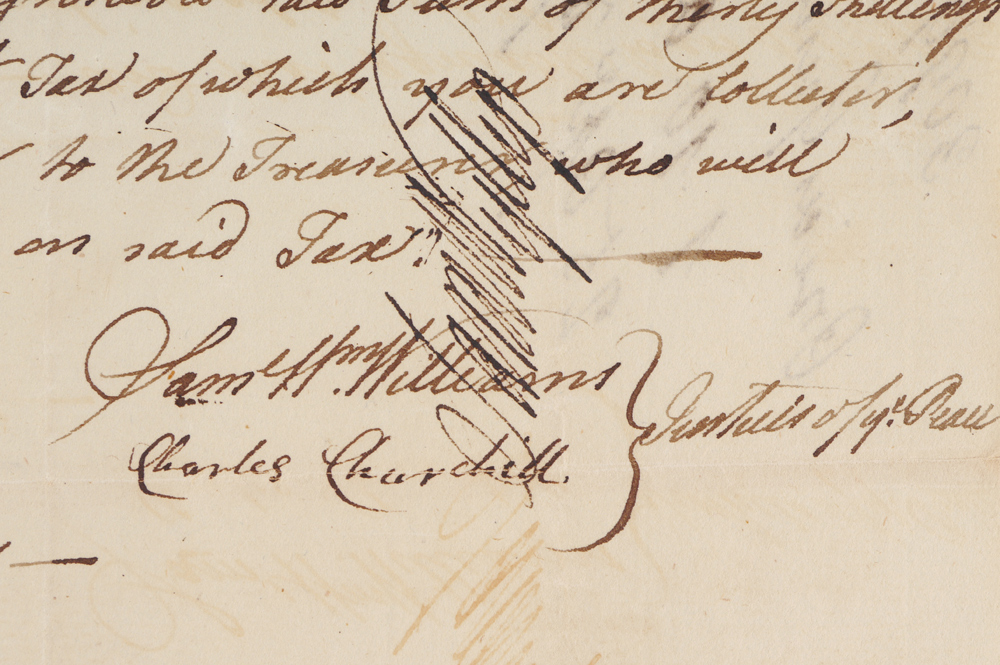 said Sum of thirty Shillings
Tax of which you are Collector,
to the Treasurer who will
on said Tax.
Saml. Wm. Williams
Charles Churchill
Justices of ye. Peace